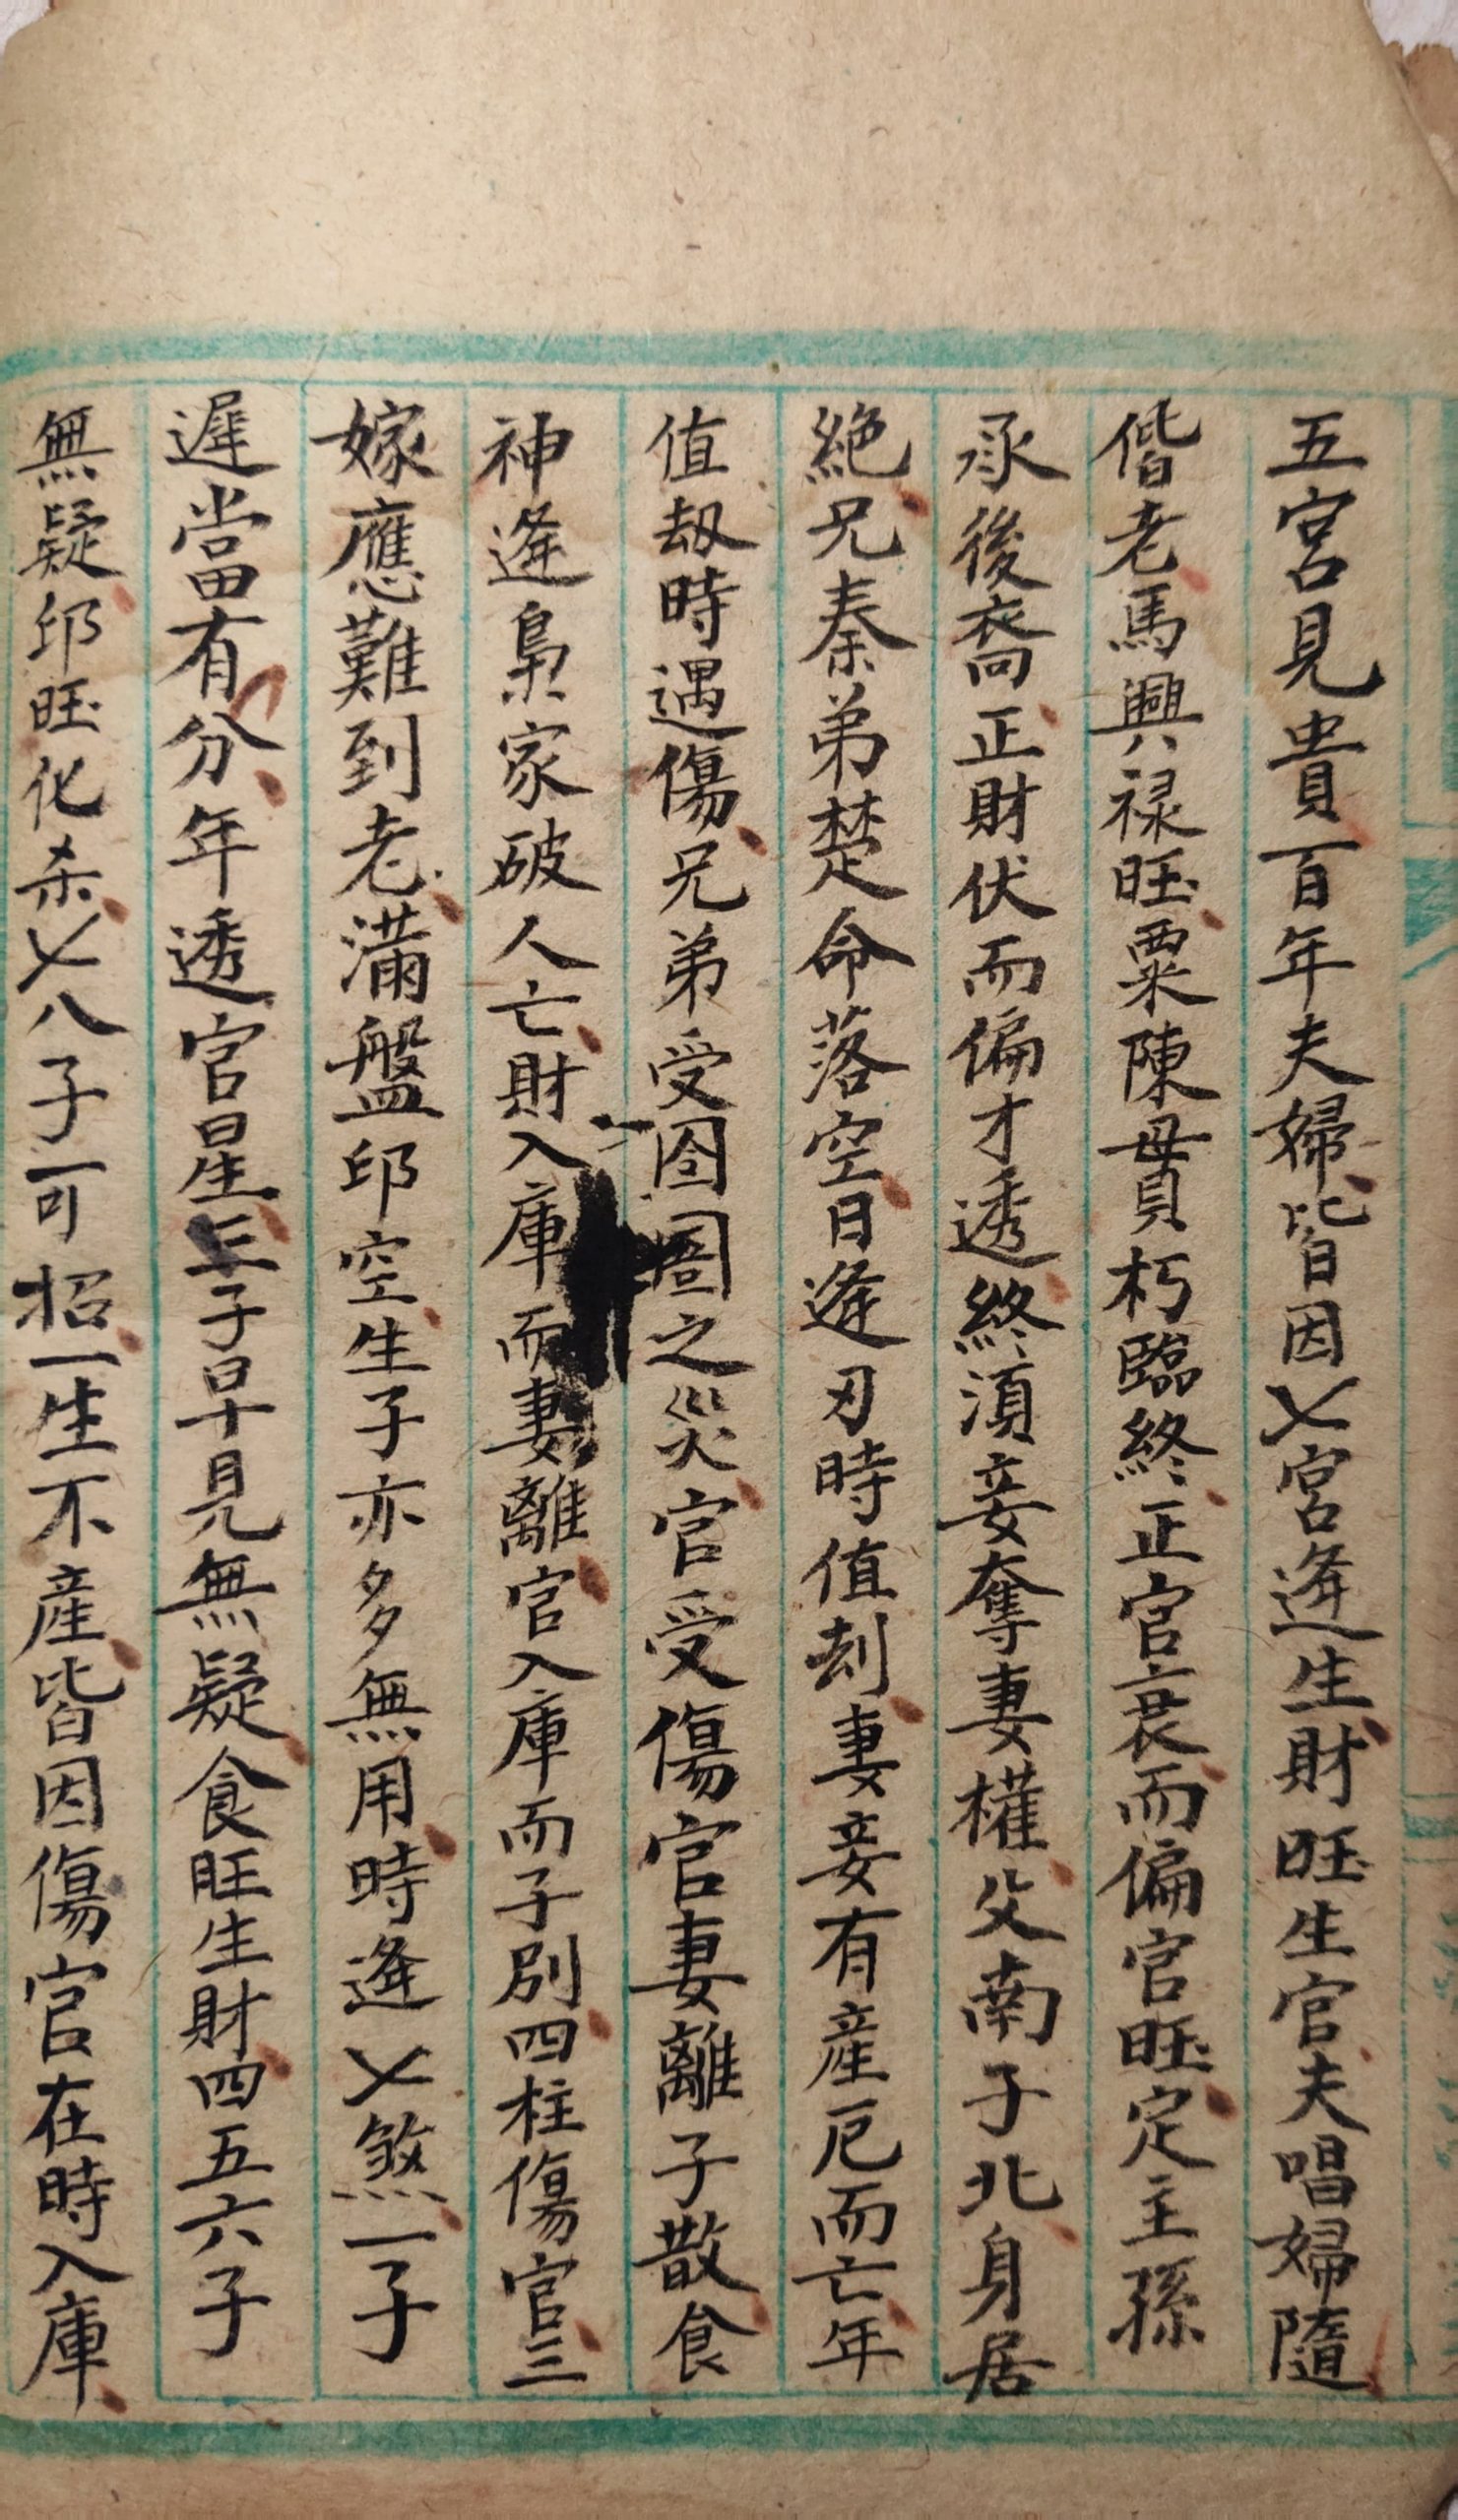 五宮見貴百年夫婦皆因〤宮逢生財旺生官夫唱婦隨
偕老馬興禄旺粟陳貫朽臨終正官衰而偏官旺定主孫
承後裔正財伏而偏才透終須妾奪妻權父南子北身居
絶兄秦弟楚命落空日逢刃時值刦妻妾有産厄而亡年
值刼時遇傷兄弟受囹圄之災官受傷官妻離子散食
神逢梟家破人亡財入庫而妻離官入庫而子别四柱傷官三
嫁應難到老滿盤印空生子亦多無用時逢〤煞一子
遲當有分年透官星三子早見無疑食旺生財四五六子
無疑印旺化杀〤八子可招一生不産皆因傷官在時入庫